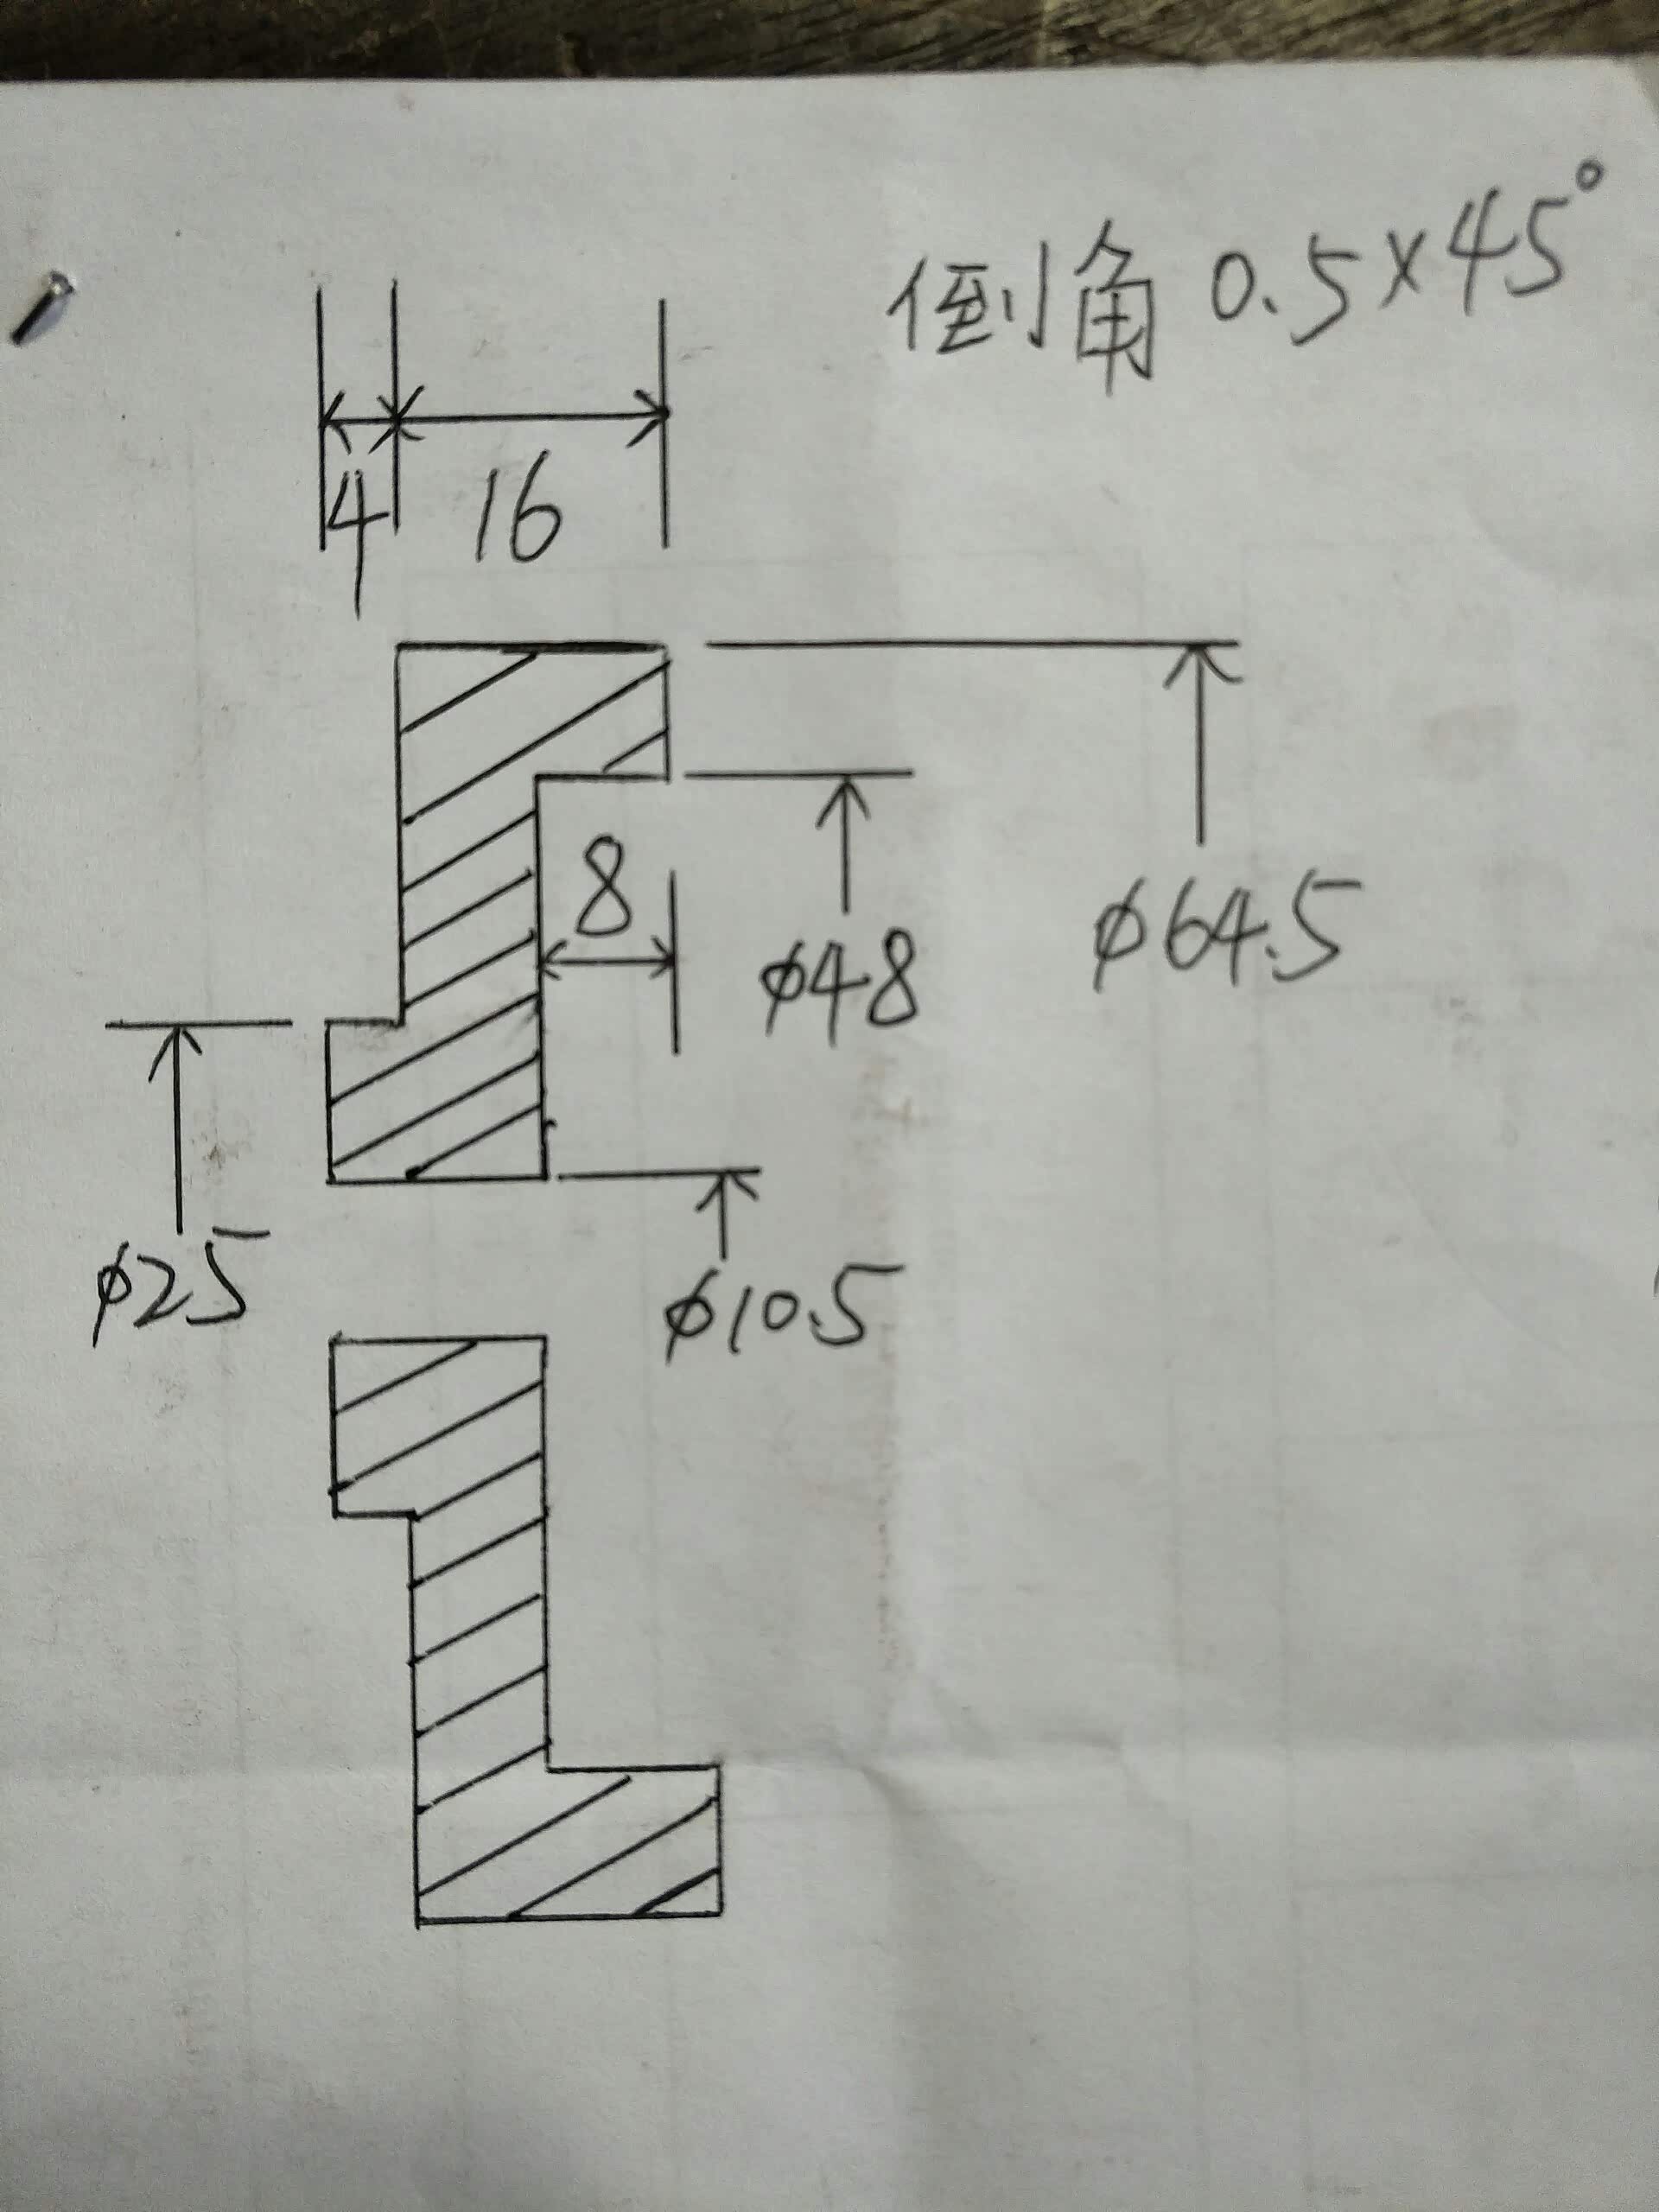 倒角 0.5×45°
4
16
8
ϕ48
ϕ64.5
ϕ25
ϕ10.5